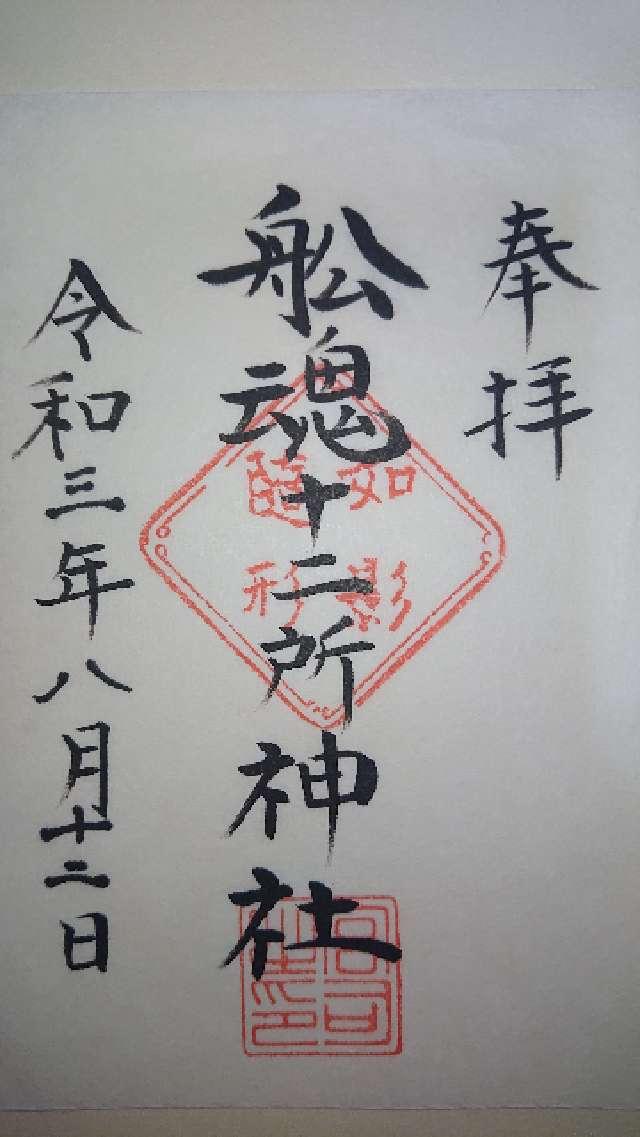 奉拝
舩魂十二所神社
如影
随形
令和三年八月十二日